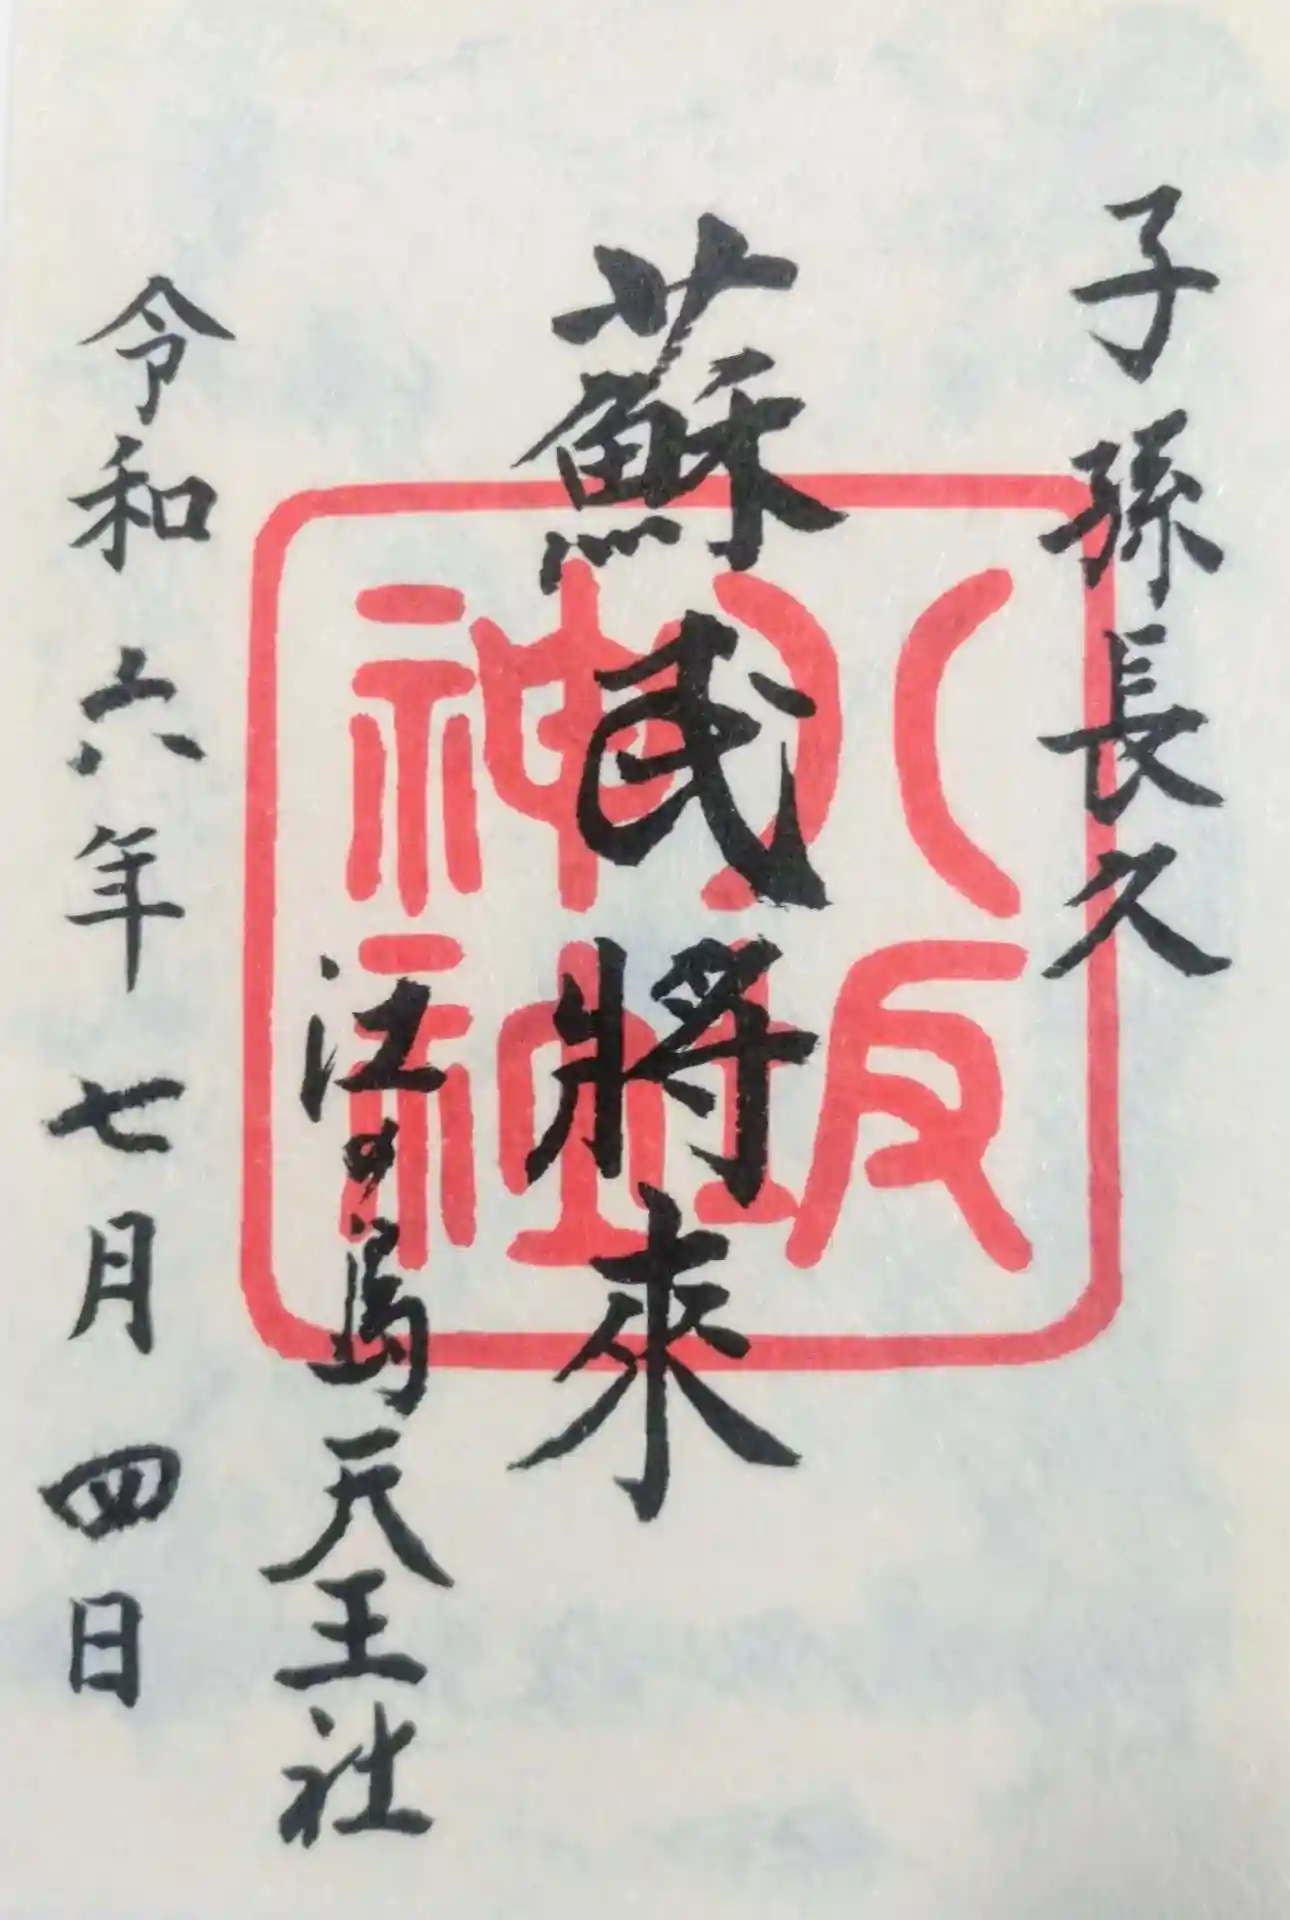 子孫長久
蘇民將來
八坂
神社
江の島天王社
令和六年七月四日